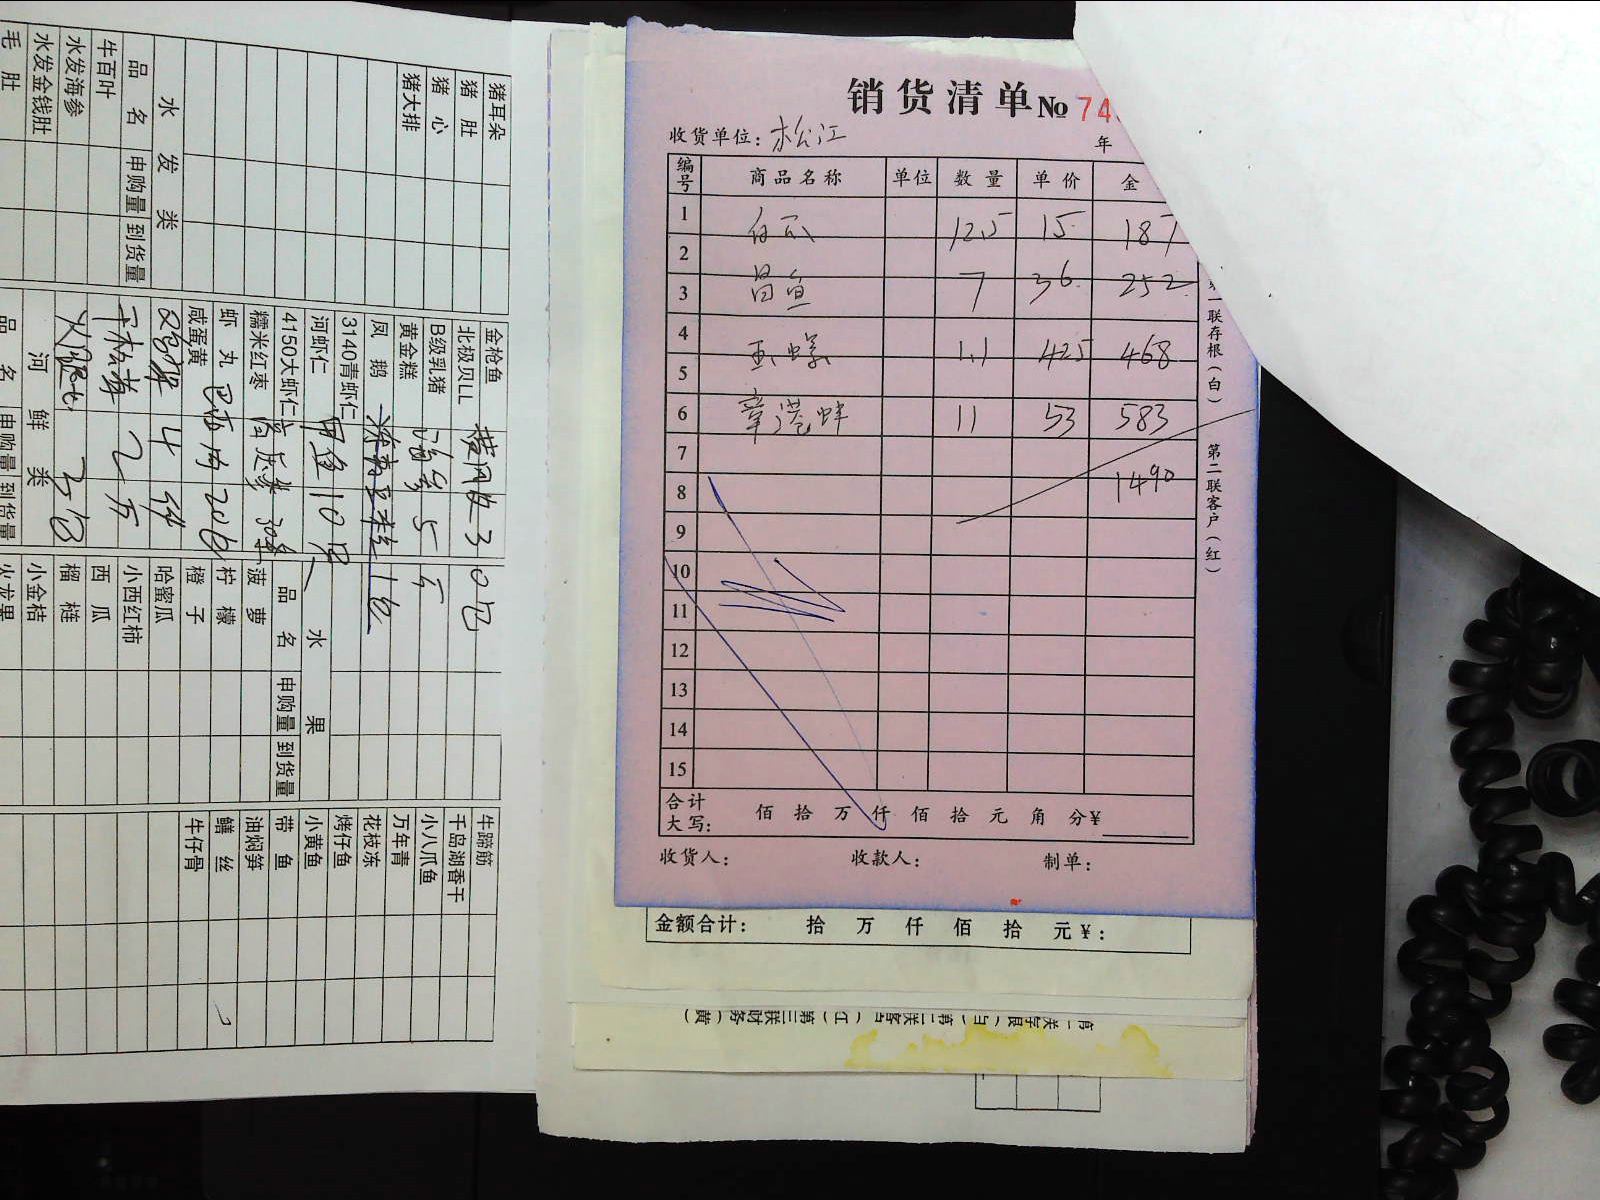 销货清单 № 74
收货单位: 松江 年
编号 商品名称 单位 数量 单价 金
1 白瓜 12.5 15 187
2
3 昌鱼 7 36 252
4
5 玉螺 1.1 425 468
6 章港蚌 11 53 583
7
8 1490
9
10
11
12
13
14
15
合计大写: 佰 拾 万 仟 佰 拾 元 角 分 ¥
收货人: 收款人: 制单:
一联存根(白) 第二联客户(红)
金额合计: 拾 万 仟 佰 拾 元 ¥:
第三联财务(黄)
猪耳朵
猪肚
猪心
猪大排
水发类
品名 申购量 到货量
牛百叶
水发海参
水发金钱肚
毛肚
金枪鱼
北极贝LL
B级乳猪
黄金糕 5
凤鹅
3140青虾仁
河虾仁 甲鱼 10只
4150大虾仁
糯米红枣
虾丸
咸蛋黄
河鲜类
品名 申购量 到货量
水果
品名 申购量 到货量
菠萝
柠檬
橙子
哈蜜瓜
小西红柿
西瓜
榴梿
小金桔
火龙果
牛蹄筋
千岛湖香干
小八爪鱼
万年青
花枝冻
烤仔鱼
小黄鱼
带鱼
油焖笋
鳝丝
牛仔骨